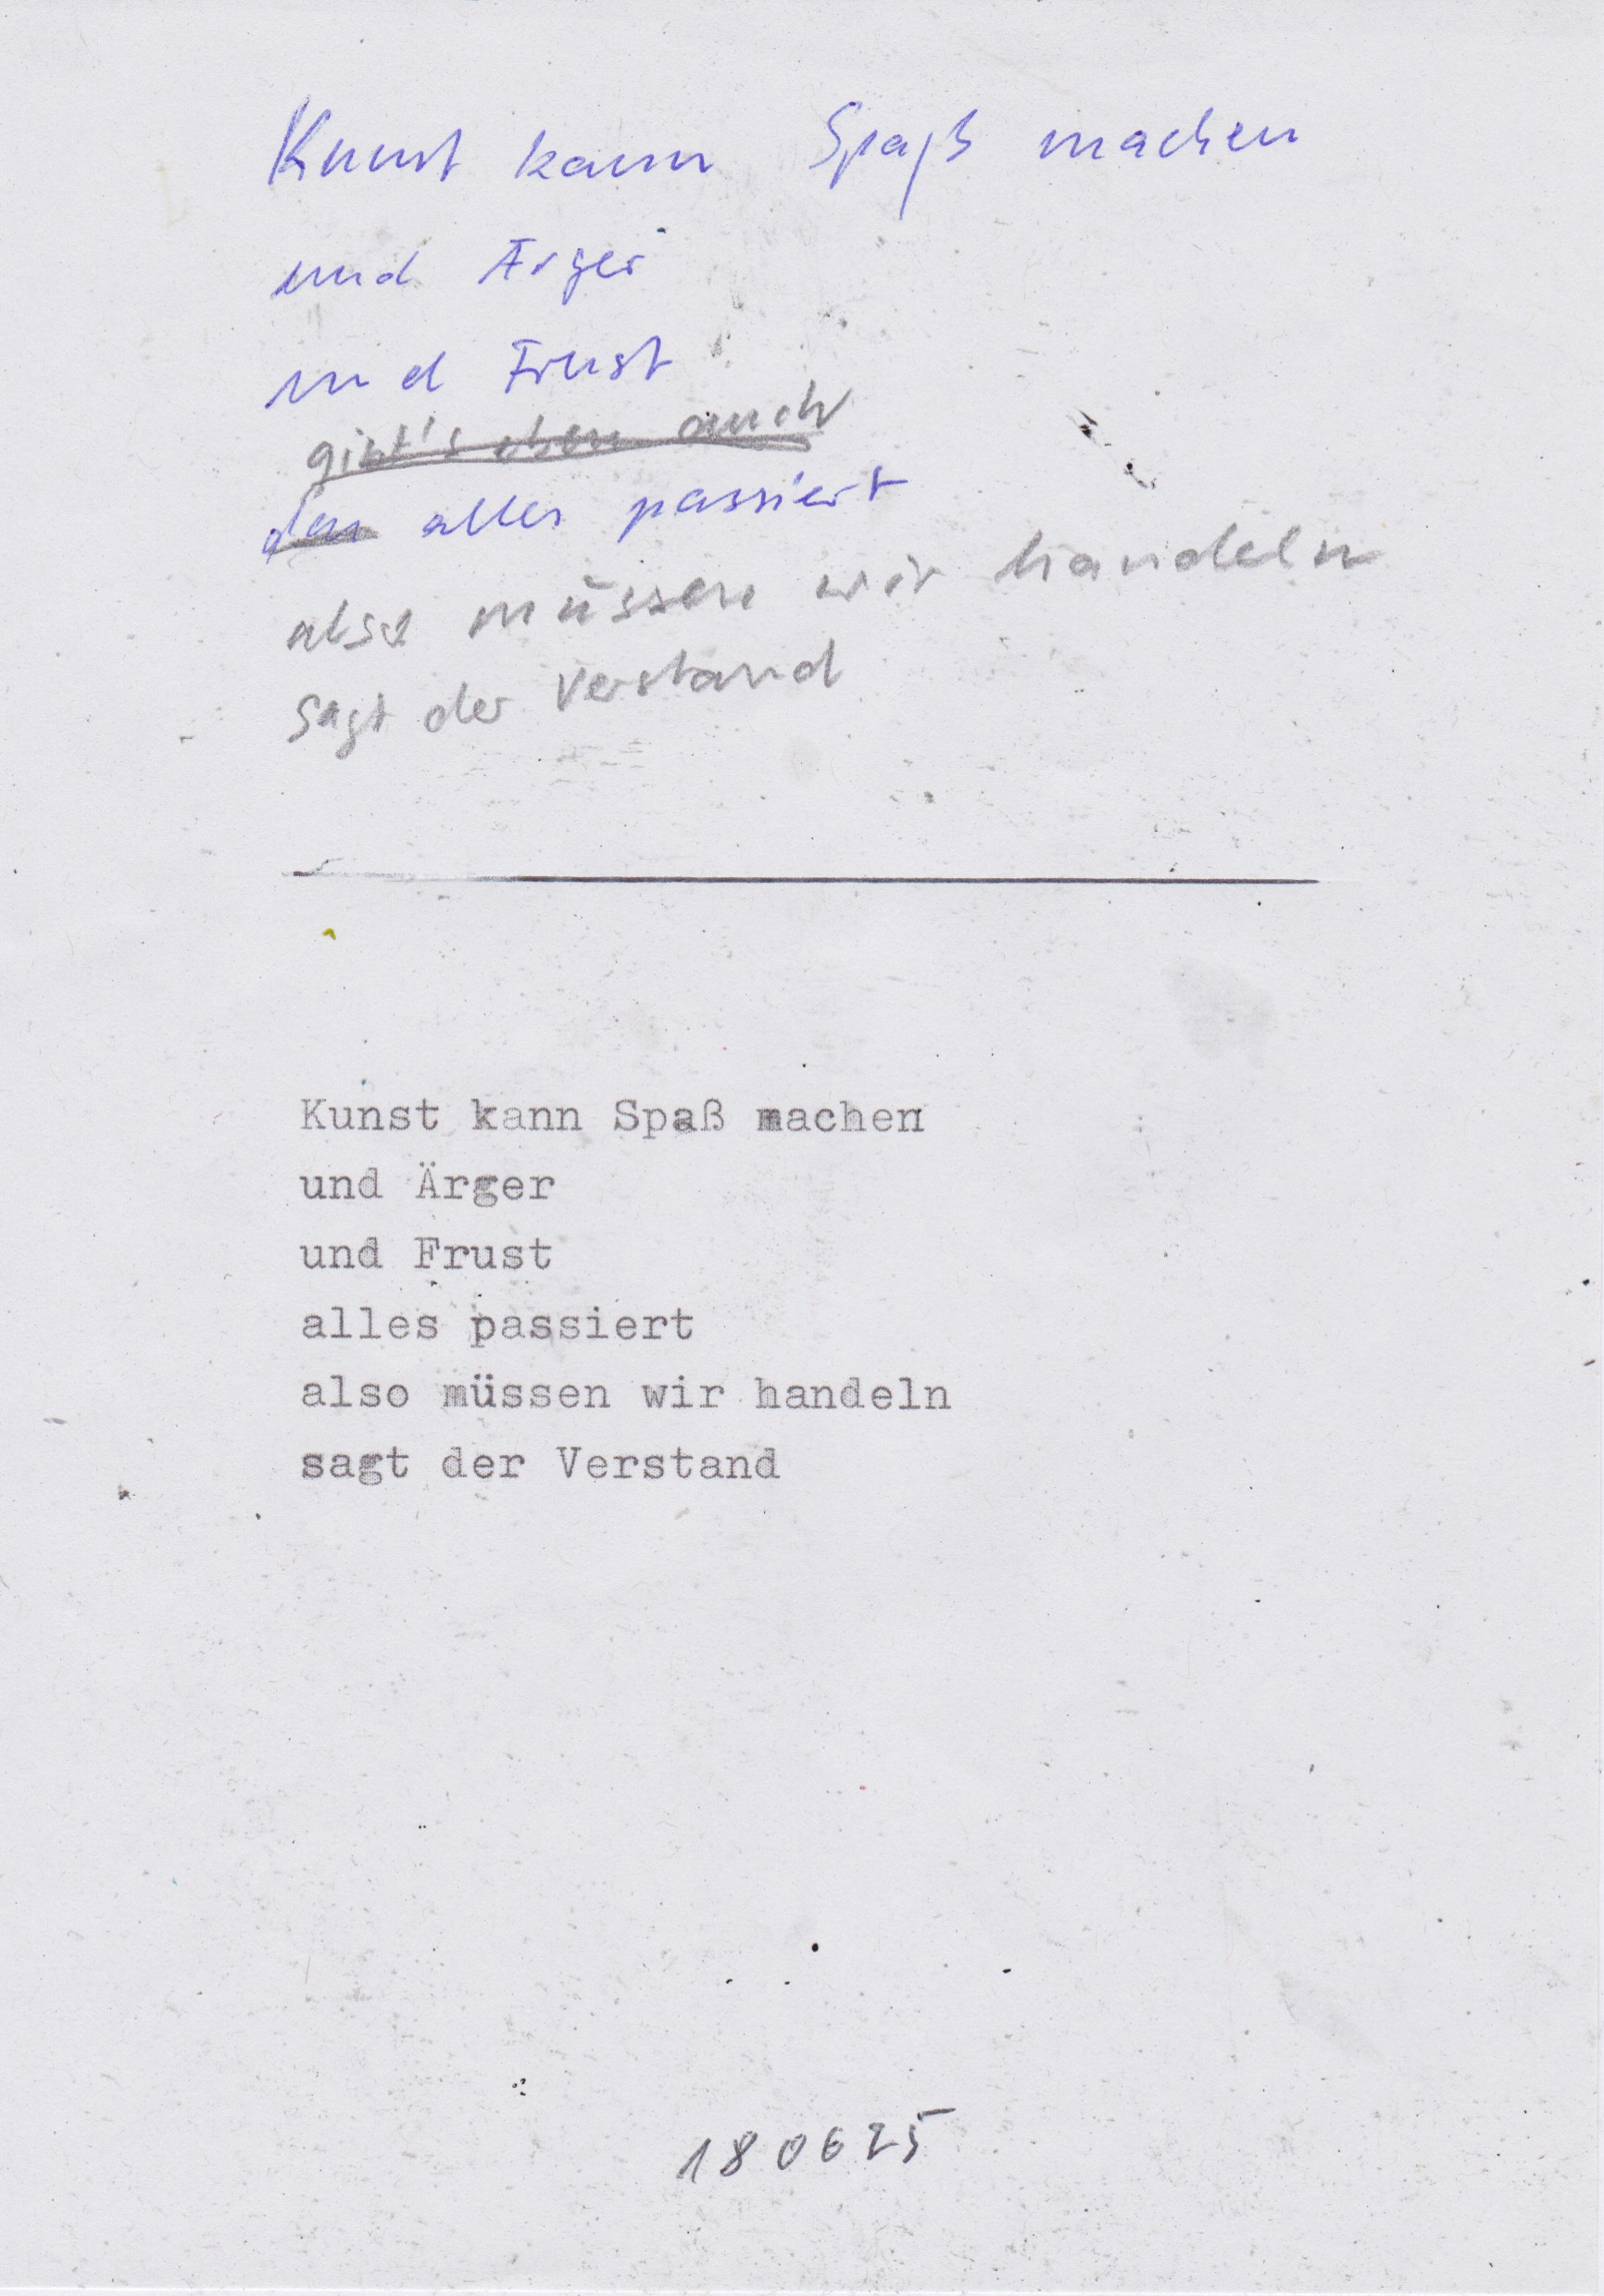 Kunst kann Spaß machen
und Ärger
und Frust
gibt's eben auch
das alles passiert
also müssen wir handeln
sagt der Verstand
Kunst kann Spaß machen
und Ärger
und Frust
alles passiert
also müssen wir handeln
sagt der Verstand
180625